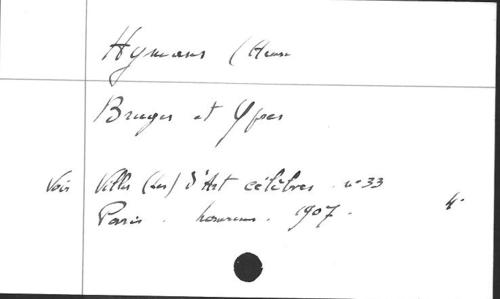 Hymans (Henri
Bruges et Ypres
Voir Villes (Les) d'Art célèbres. n° 33
Paris. 1907.
4°